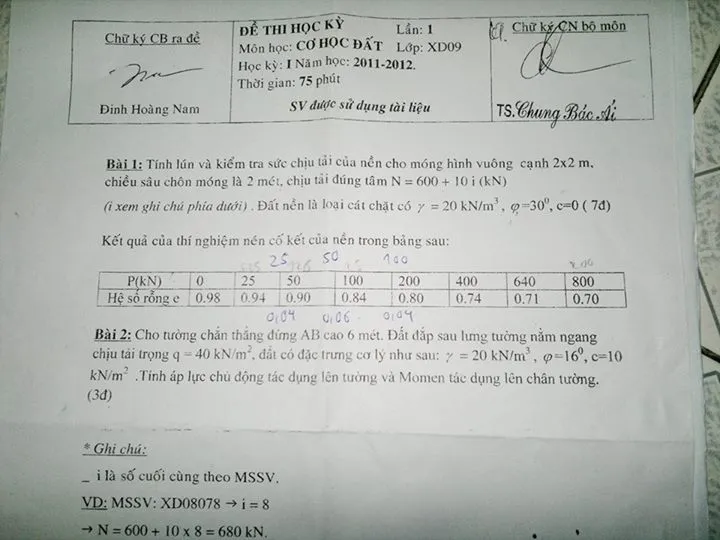 Chữ ký CB ra đề
Đinh Hoàng Nam
ĐỀ THI HỌC KỲ Lần: 1
Môn học: CƠ HỌC ĐẤT Lớp: XD09
Học kỳ: I Năm học: 2011-2012.
Thời gian: 75 phút
SV được sử dụng tài liệu
Chữ ký CN bộ môn
TS. Chung Bác Ái
Bài 1: Tính lún và kiểm tra sức chịu tải của nền cho móng hình vuông cạnh 2x2 m,
chiều sâu chôn móng là 2 mét, chịu tải đúng tâm N = 600 + 10 i (kN)
(i xem ghi chú phía dưới) . Đất nền là loại cát chặt có γ = 20 kN/m³ , φ=30⁰, c=0 ( 7đ)
Kết quả của thí nghiệm nén cố kết của nền trong bảng sau:
25 50 100
P(kN) 0 25 50 100 200 400 640 800
Hệ số rỗng e 0.98 0.94 0.90 0.84 0.80 0.74 0.71 0.70
0,04 0,06 0,04
Bài 2: Cho tường chắn thẳng đứng AB cao 6 mét. Đất đắp sau lưng tường nằm ngang
chịu tải trọng q = 40 kN/m², đất có đặc trưng cơ lý như sau: γ = 20 kN/m³ , φ=16⁰, c=10
kN/m² .Tính áp lực chủ động tác dụng lên tường và Momen tác dụng lên chân tường.
(3đ)
* Ghi chú:
_ i là số cuối cùng theo MSSV.
VD: MSSV: XD08078 → i = 8
→ N = 600 + 10 x 8 = 680 kN.